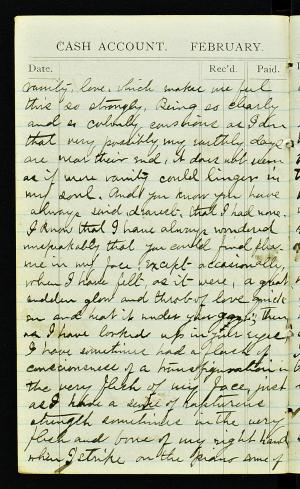 CASH ACCOUNT. FEBRUARY.
Date. Rec'd. Paid.
vanity, love, which makes me feel
this so strongly. Being so clearly
and so calmly conscious as I am
that very possibly my earthly days
are near their end, it does not seem
as if mere vanity could linger in
my soul. And you know you have
always said, dearest, that I had none.
I know that I have always wondered
unspeakably that you could find
me in my face, except occasionally,
when I have felt, as it were, a great
sudden glow and throb of love quick
en and heat it under your gaze; then
as I have looked up in your eyes
I have sometimes had a flash of
consciousness of a transfiguration in
the very flesh of my face, just
as I have a sense of rapturous
strength sometimes in the very
flesh and bone of my right hand
when I strike on the piano some of